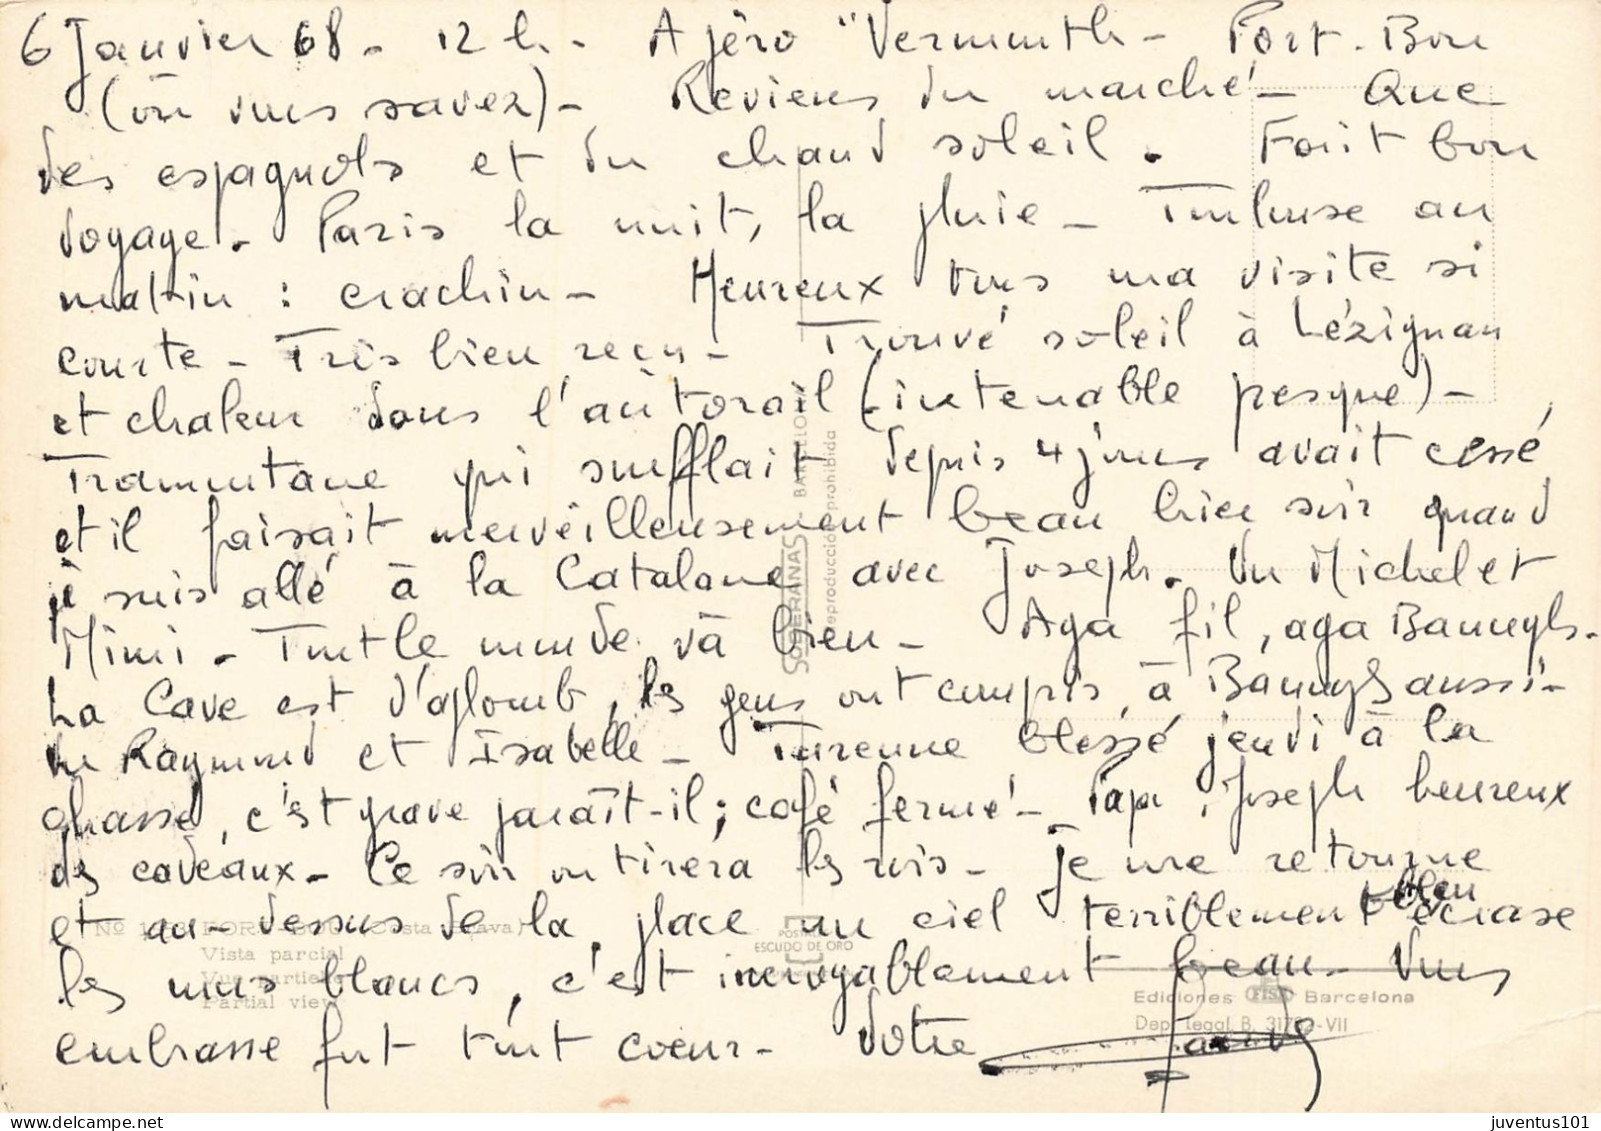 6 Janvier 68 - 12 h. - Apéro "Vermouth - Port-Bou
(où vous savez) - Reviens du marché - Que
des espagnols et du chaud soleil. Fait bon
voyage. Paris la nuit, la pluie - Toulouse au
matin : crachin - Heureux tous ma visite si
courte - Très bien reçu - Trouvé soleil à Lézignan
et chaleur dans l'autorail (intenable presque) -
Tramontane qui soufflait depuis 4 jours avait cessé
et il faisait merveilleusement beau hier soir quand
je suis allé à la Catalane avec Joseph. Vu Michel et
Mimi. Tout le monde va bien - Aga fil, aga Banuyls.
La Cave est d'aplomb, les gens ont compris à Banuyls aussi -
Vu Raymond et Isabelle - Turenne blessé jeudi à la
chasse, c'est grave paraît-il ; café fermé - Papi, Joseph heureux
des caveaux - Ce soir on tirera les rois - Je me retourne
et au-dessus de la place un ciel terriblement bleu écrase
les murs blancs, c'est incroyablement beau - Vous
embrasse fort tout cœur - Votre
SOBERANAS BARCELONA
reproducción prohibida
PORT-BOU (Costa Brava)
Vista parcial
Vue partielle
Partial view
POSTALES
ESCUDO DE ORO
Ediciones FISA Barcelona
Dep. legal B. 31792-VII
juventus101